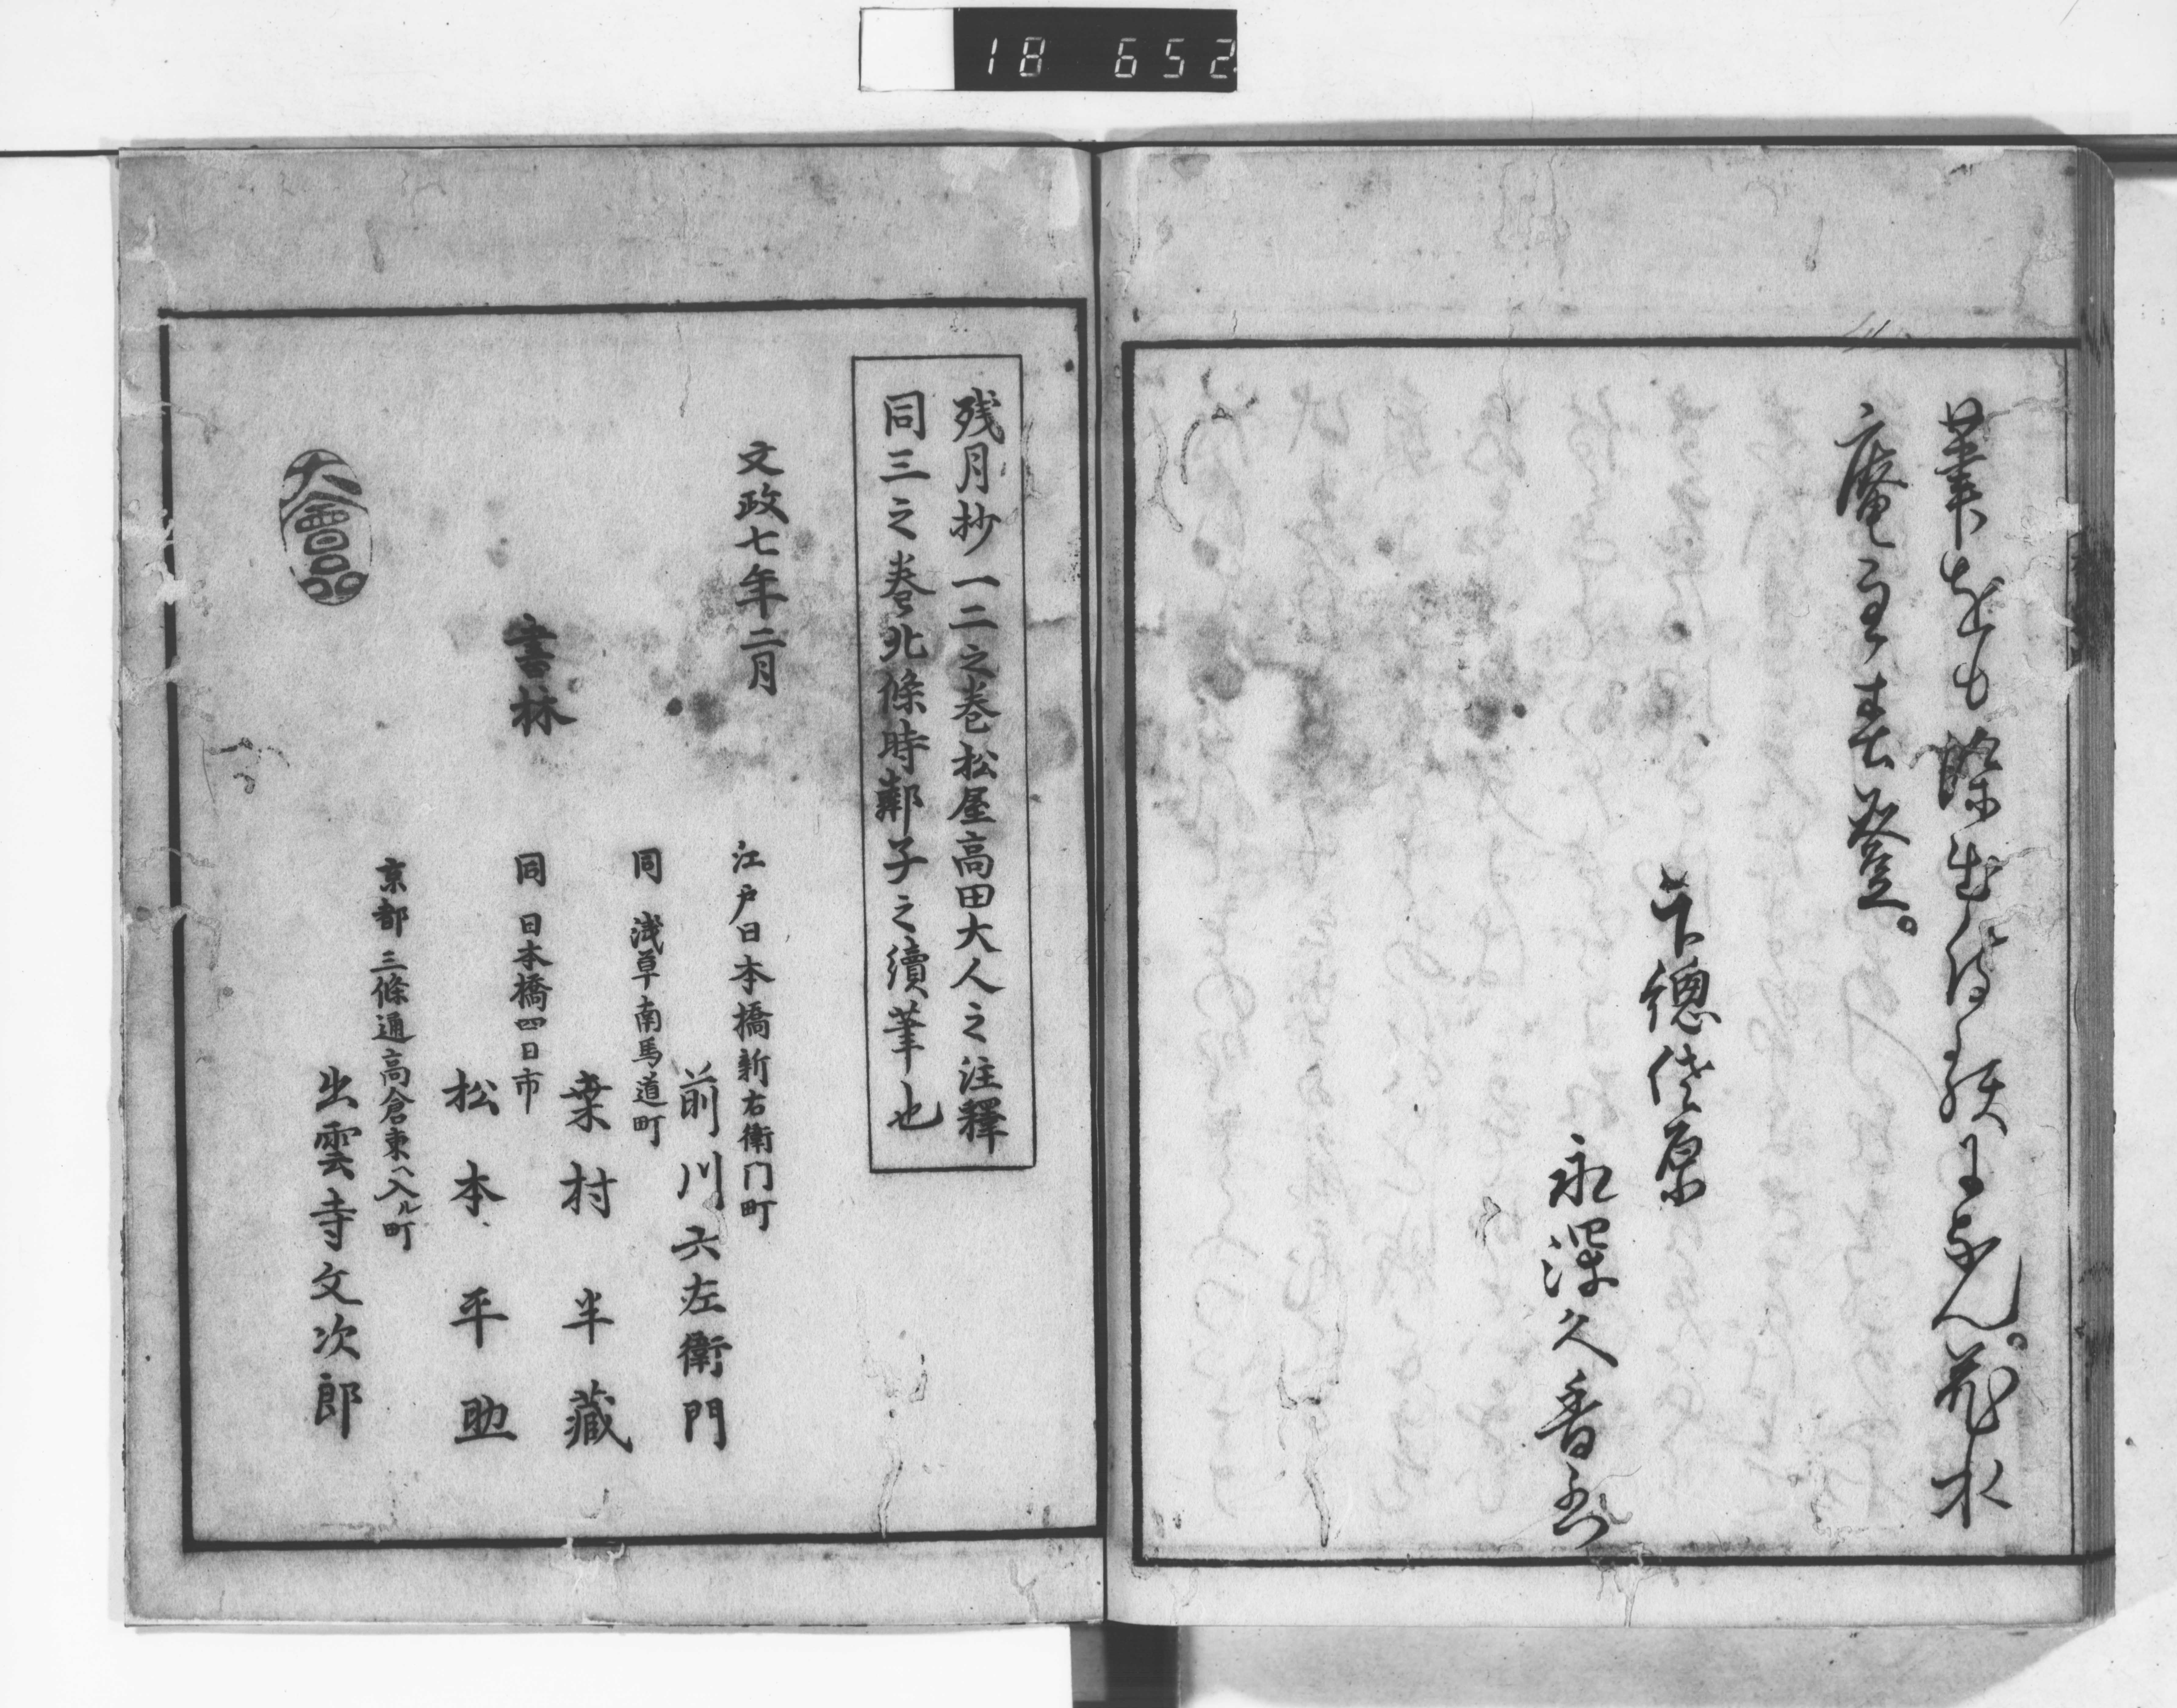 18 652
筆をも
庵主
下總佐原
永澤久香
残月抄一二之巻松屋高田大人之注釋
同三之巻北條時鄰子之續筆也
文政七年二月
書林
江戸日本橋新右衛门町
前川六左衛門
同 浅草南馬道町
葉村半藏
同 日本橋四日市
松本平助
京都三條通高倉東ヘ入ル町
出雲寺文次郎